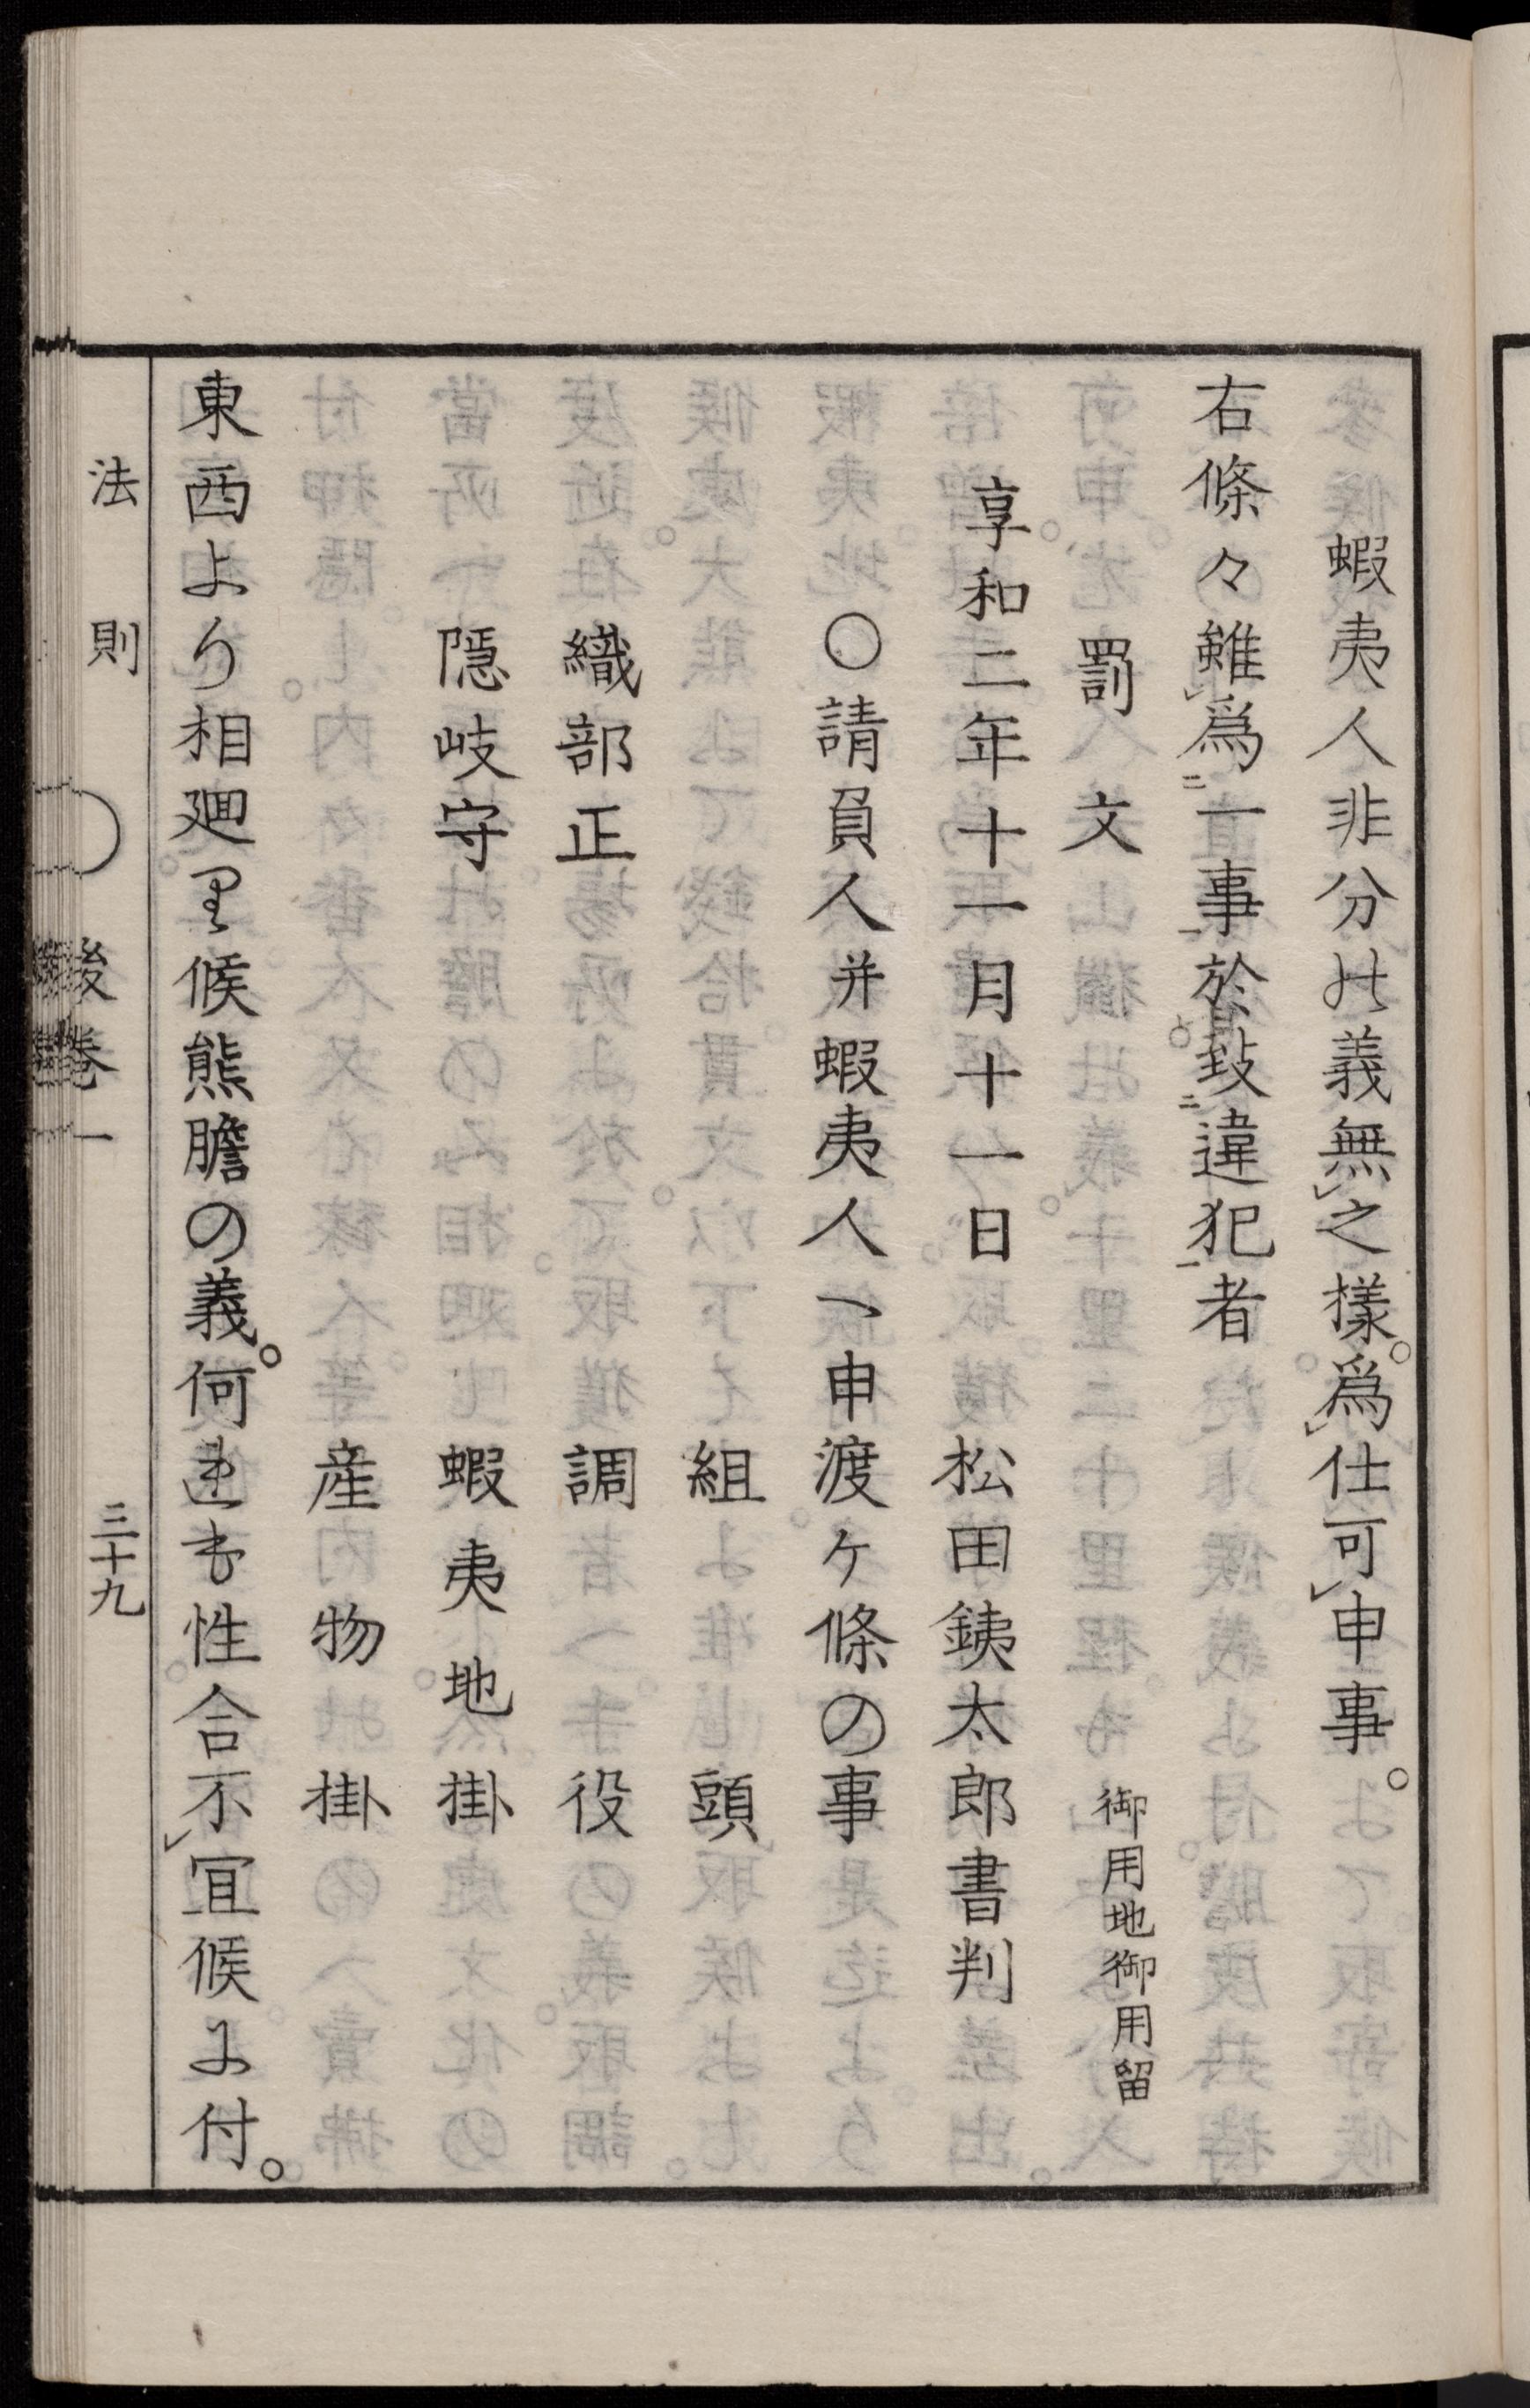 蝦夷人非分の義無㆑之樣。爲㆑仕可㆑申事。
右條々雖㆑爲㆓一事㆒於㆘致㆓違犯㆒者
罰文
御用地御用留
享和二年十一月十一日 松田銕太郎書判
〇請負人并蝦夷人へ申渡ケ條の事
組頭
織部正 調役
隱岐守 蝦夷地掛
産物掛
東西より相廻り候熊膽の義。何れも性合不㆑宜候に付。
法則 後巻一 三十九